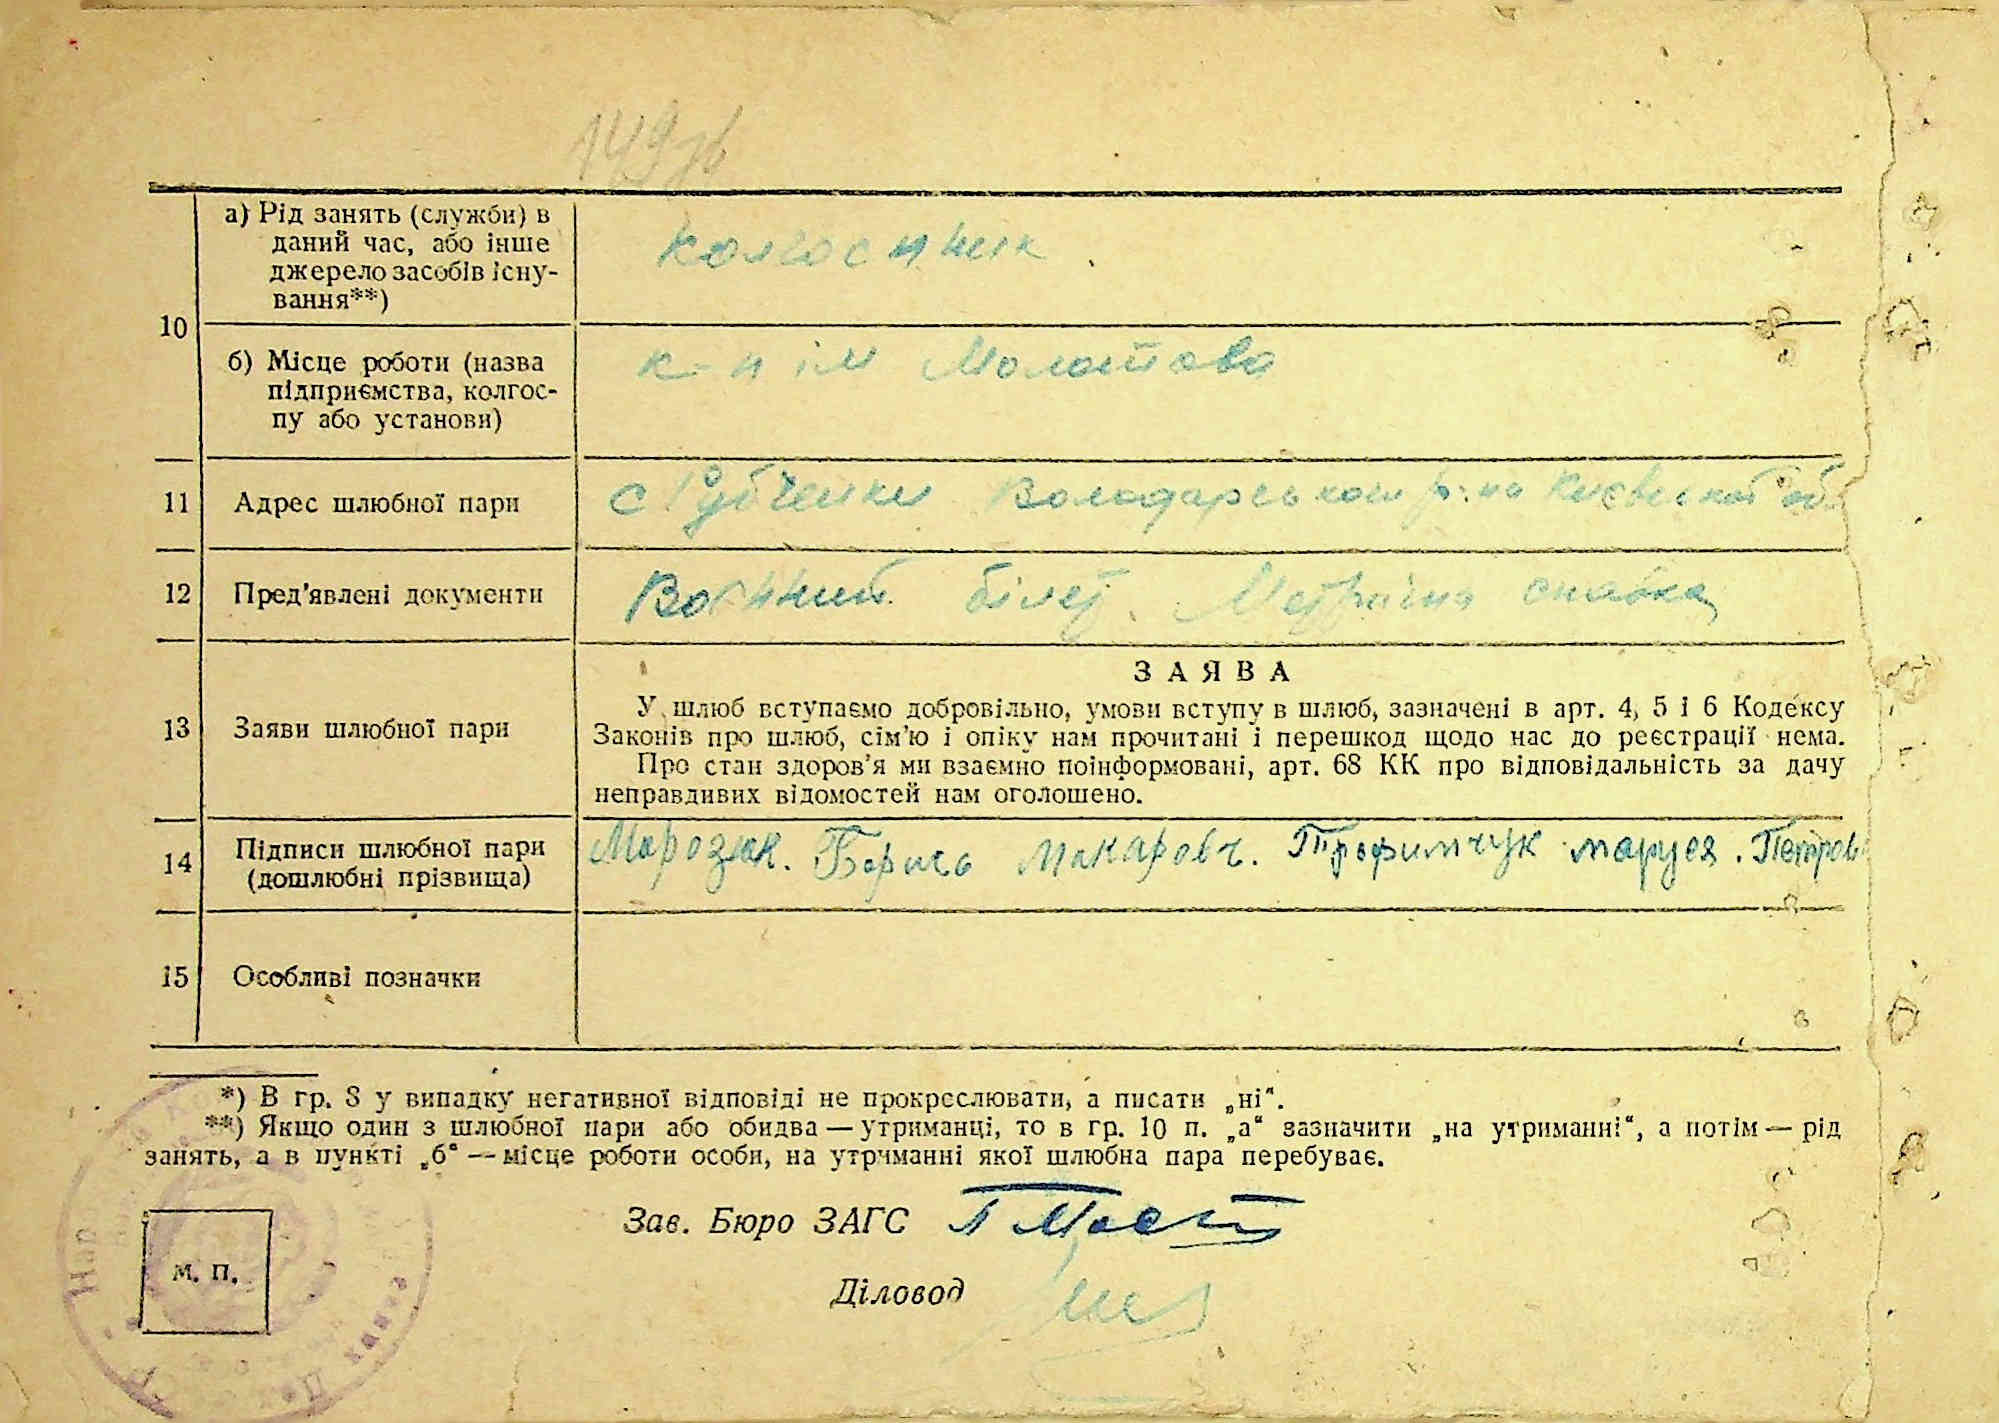 149 зв
а) Рід занять (служби) в
даний час, або інше
джерело засобів існу-
вання**)
колгоспник
10
б) Місце роботи (назва
підприємства, колгос-
пу або установи)
к-п ім Молотова
11 Адрес шлюбної пари
с Рубченки Володарського р-ну Київської обл
12 Пред'явлені документи
Воєнний білет. Метрична справка
13 Заяви шлюбної пари
ЗАЯВА
У шлюб вступаємо добровільно, умови вступу в шлюб, зазначені в арт. 4, 5 і 6 Кодексу
Законів про шлюб, сім'ю і опіку нам прочитані і перешкод щодо нас до реєстрації нема.
Про стан здоров'я ми взаємно поінформовані, арт. 68 КК про відповідальність за дачу
неправдивих відомостей нам оголошено.
14 Підписи шлюбної пари
(дошлюбні прізвища)
Морозюк. Борись Макаровч. Трофимчук маруся. Петров
15 Особливі позначки
*) В гр. 8 у випадку негативної відповіді не прокреслювати, а писати „ні“.
**) Якщо один з шлюбної пари або обидва — утриманці, то в гр. 10 п. „а“ зазначити „на утриманні“, а потім — рід
занять, а в пункті „б“ — місце роботи особи, на утриманні якої шлюбна пара перебуває.
Зав. Бюро ЗАГС
Діловод
М. П.